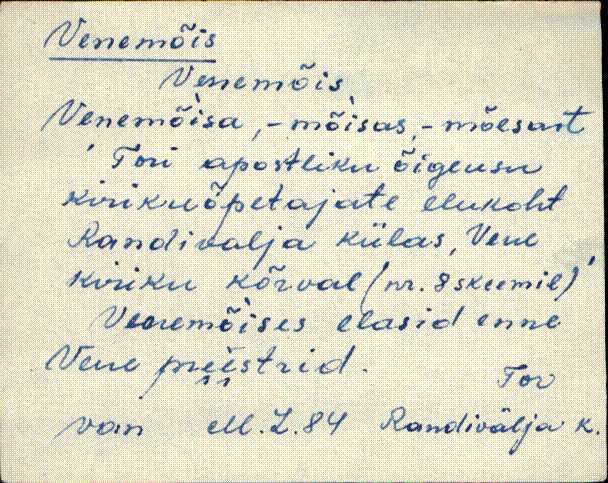 Venemõis
Venemõis,
Venemòisa, -mòisas, -mõesast
Tori apostliku õigeusu
kirikuõpetajate elukoht
Randivälja külas, Vene
kiriku kõrval (nr. 8 skeemil)
Venemòises elasid enne
Vene preestrid.
Tor
van M. L. 84 Randivälja k.